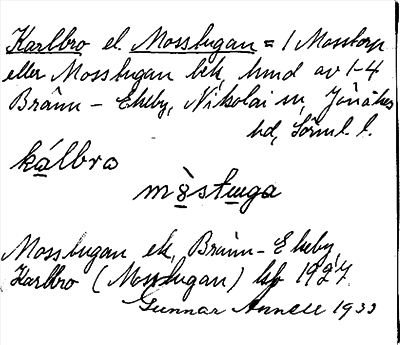 Karlbro el. Mosstugan = 1 Mosstorp
eller Mosstugan bek, hmd av 1-4
Bränn-Ekeby, Nikolai sn, Jönåkers
hd, Sörml. l.
kálbro
mòstuga
Mosstugan ek, Bränn-Ekeby,
Karlbro (Mosstugan) lsb 1927.
Gunnar Annell 1933